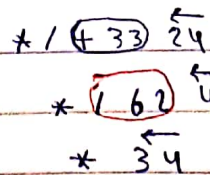 * / + 33 24
* / 62 4
* 34